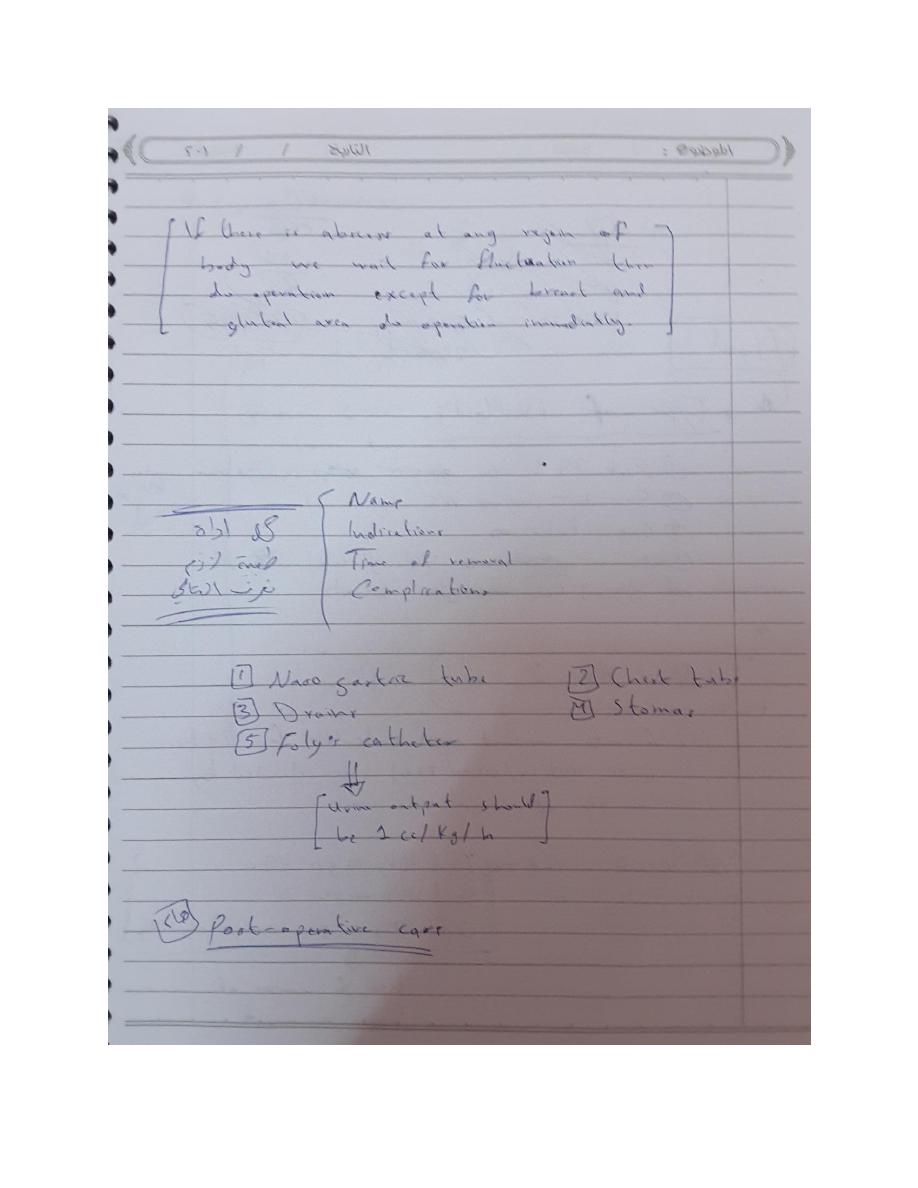 الموضوع : التاريخ / / ٢٠١
If there is abscess at any rejoin of
body we wait for fluctuation then
do operation except for breast and
gluteal area do operation immediatlly.
Name
كل اداة Indications
طبية لازم Time of removal
نعرف التالي Complications
1 Naso gastric tube 2 Chest tube
3 Drains 4 Stomas
5 Foly's catheter
Urine output should
be 1 cc/Kg/h
Post-operative care